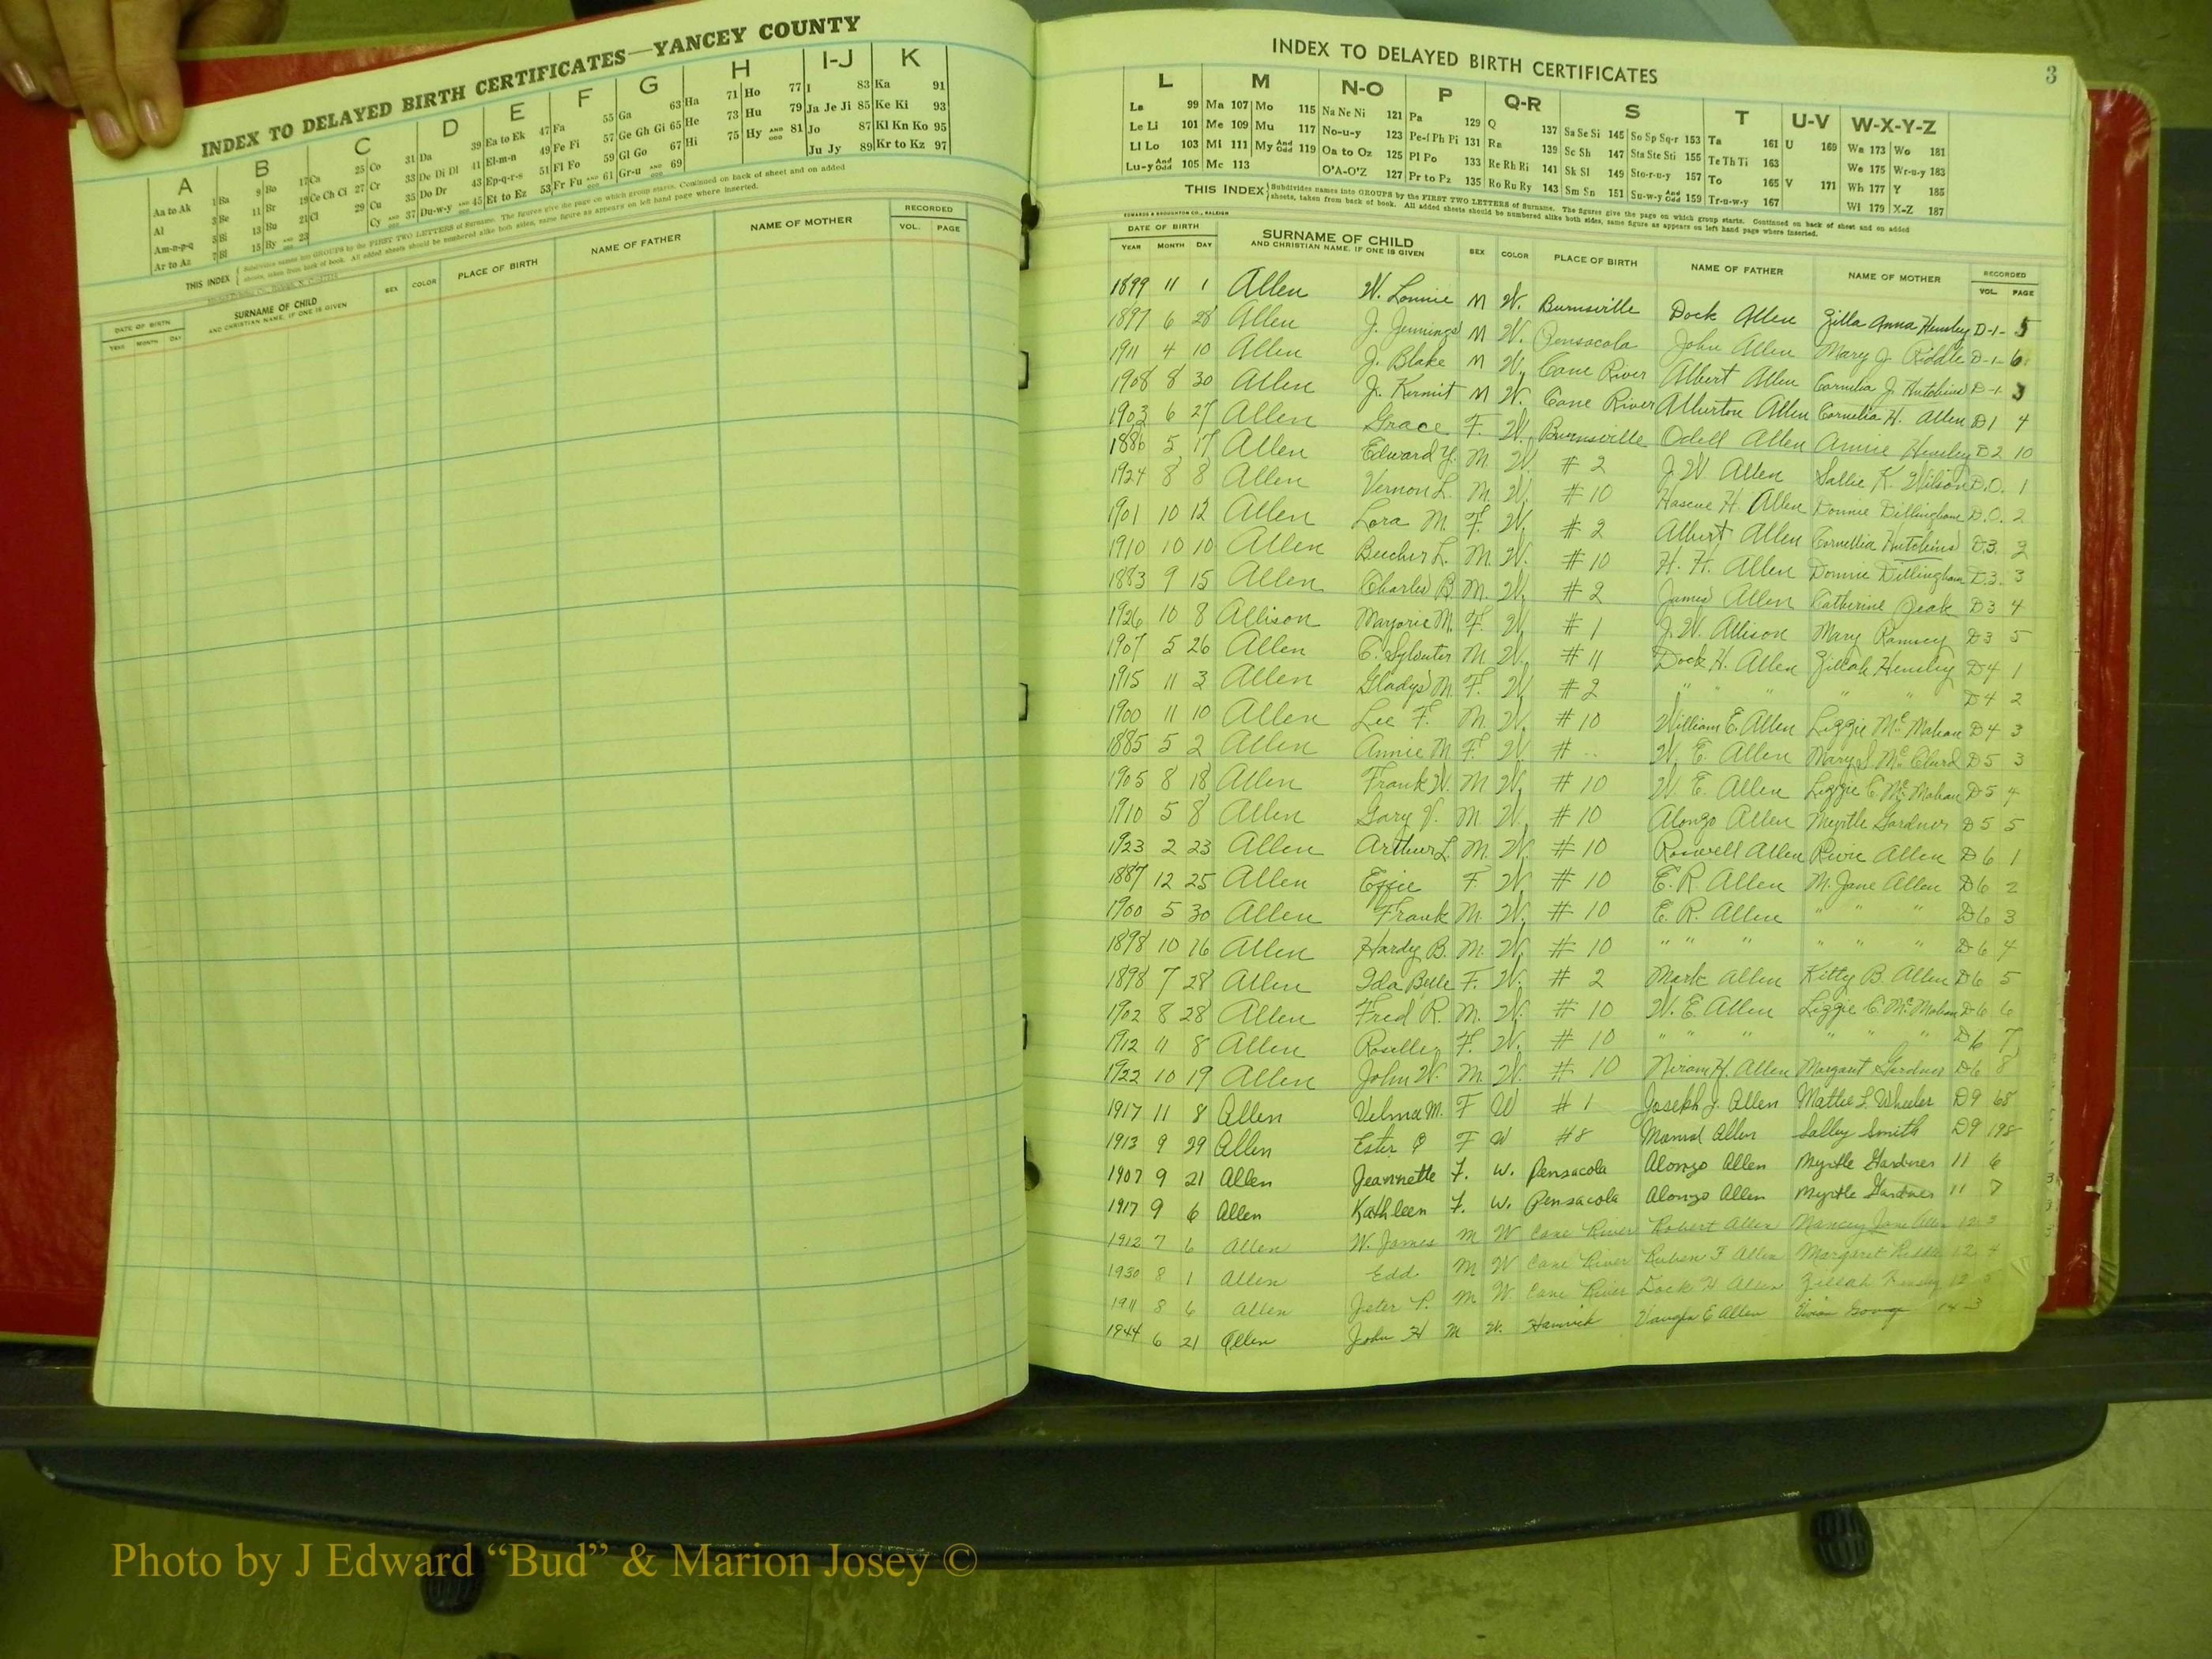 INDEX TO DELAYED BIRTH CERTIFICATES—YANCEY COUNTY
A B C D E F G H I-J K
Aa to Ak 1 Ba 9 Bo 17 Ca 25 Co 31 Da 39 Ea to Ek 47 Fa 55 Ga 63 Ha 71 Ho 77 I 83 Ka 91
Al 3 Be 11 Br 19 Ce Ch Ci 27 Cr 33 De Di Dl 41 El-m-n 49 Fe Fi 57 Ge Gh Gi 65 He 73 Hu 79 Ja Je Ji 85 Ke Ki 93
Am-n-p-q 5 Bi 13 Bu 21 Cl 29 Cu 35 Do Dr 43 Ep-q-r-s 51 Fl Fo 59 Gl Go 67 Hi 75 Hy AND ODD 81 Jo 87 Kl Kn Ko 95
Ar to Az 7 Bl 15 By AND ODD 23 Cy AND ODD 37 Du-w-y AND ODD 45 Et to Ez 53 Fr Fu AND ODD 61 Gr-u AND ODD 69 Ju Jy 89 Kr to Kz 97
THIS INDEX Subdivides names into GROUPS by the FIRST TWO LETTERS of Surname. The figures give the page on which group starts. Continued on back of sheet and on added
sheets, taken from back of book. All added sheets should be numbered alike both sides, same figure as appears on left hand page where inserted.
DATE OF BIRTH SURNAME OF CHILD SEX COLOR PLACE OF BIRTH NAME OF FATHER NAME OF MOTHER RECORDED
YEAR MONTH DAY AND CHRISTIAN NAME, IF ONE IS GIVEN VOL. PAGE
INDEX TO DELAYED BIRTH CERTIFICATES 3
L M N-O P Q-R S T U-V W-X-Y-Z
La 99 Ma 107 Mo 115 Na Ne Ni 121 Pa 129 Q 137 Sa Se Si 145 So Sp Sq-r 153 Ta 161 U 169 Wa 173 Wo 181
Le Li 101 Me 109 Mu 117 No-u-y 123 Pe-f Ph Pi 131 Ra 139 Sc Sh 147 Sta Ste Sti 155 Te Th Ti 163 We 175 Wr-u-y 183
Ll Lo 103 Mi 111 My And Odd 119 Oa to Oz 125 Pl Po 133 Re Rh Ri 141 Sk Sl 149 Sto-r-u-y 157 To 165 V 171 Wh 177 Y 185
Lu-y And Odd 105 Mc 113 O'A-O'Z 127 Pr to Pz 135 Ro Ru Ry 143 Sm Sn 151 Su-w-y And Odd 159 Tr-u-w-y 167 Wi 179 X-Z 187
THIS INDEX Subdivides names into GROUPS by the FIRST TWO LETTERS of Surname. The figures give the page on which group starts. Continued on back of sheet and on added
sheets, taken from back of book. All added sheets should be numbered alike both sides, same figure as appears on left hand page where inserted.
EDWARDS & BROUGHTON CO., RALEIGH
DATE OF BIRTH SURNAME OF CHILD SEX COLOR PLACE OF BIRTH NAME OF FATHER NAME OF MOTHER RECORDED
YEAR MONTH DAY AND CHRISTIAN NAME, IF ONE IS GIVEN VOL. PAGE
1899 11 1 Allen W. Lonnie M W. Burnsville Dock Allen Zilla Anna Hensley D-1- 5
1897 6 28 Allen J. Jennings M W. Pensacola John Allen Mary J. Riddle D-1- 6
1911 4 10 Allen J. Blake M W. Cane River Albert Allen Cornelia J. Hutchins D-1- 3
1908 8 30 Allen J. Kermit M W. Cane River Alberton Allen Cornelia H. Allen D1 4
1903 6 27 Allen Grace F. W. Burnsville Odell Allen Annie Hensley D2 10
1886 5 17 Allen Edward Y. M. W. # 2 J. W. Allen Sallie K. Wilson D.O. 1
1924 8 8 Allen Vernon L. M. W. # 10 Hascue H. Allen Donnie Dillingham D.O. 2
1901 10 12 Allen Lora M. F. W. # 2 Albert Allen Cornellia Hutchins D.3. 2
1910 10 10 Allen Beecher L. M. W. # 10 H. H. Allen Donnie Dillingham D.3. 3
1883 9 15 Allen Charles B. M. W. # 2 James Allen Catherine Peak D3 4
1926 10 8 Allison Marjorie M. F. W # 1 J. W. Allison Mary Ramsey D3 5
1907 5 26 Allen C. Sylvester M. W. # 11 Dock H. Allen Zillah Hensley D4 1
1915 11 3 Allen Gladys M. F. W # 2 " " " " D4 2
1900 11 10 Allen Lee F. M. W. # 10 William E. Allen Lizzie McMahan D4 3
1885 5 2 Allen Annie M F. W. # W. E. Allen Mary S. McClurd D5 3
1905 8 18 Allen Frank W. M W. # 10 W. E. Allen Lizzie C. McMahan D5 4
1910 5 8 Allen Gary V. M W. # 10 Alonzo Allen Myrtle Gardner D5 5
1923 2 23 Allen Arthur L. M. W. # 10 Roswell Allen Allen D6 1
1887 12 25 Allen Essie F. W # 10 E. R. Allen M. Jane Allen D6 2
1900 5 30 Allen Frank M. W. # 10 E. R. Allen " " " D6 3
1898 10 16 Allen Hardy B. M. W. # 10 " " " " " " D6 4
1898 7 28 Allen Ida Belle F. W. # 2 Mark Allen Kitty B. Allen D6 5
1902 8 28 Allen Fred R. M. W. # 10 W. E. Allen Lizzie C. McMahan D6 6
1912 11 8 Allen F. W. # 10 " " " " " " D6 7
1922 10 19 Allen John W. M. W. # 10 Niram H. Allen Margaret Gardner D6 8
1917 11 8 Allen Velma M. F W # 1 Joseph J. Allen Mattie L. Wheeler D9 68
1913 9 29 Allen Ester F W #8 Allen Salley Smith D9 198
1907 9 21 Allen Jeannette F. W. Pensacola Alonzo Allen Myrtle Gardner 11 6
1917 9 6 Allen Kathleen F. W. Pensacola Alonzo Allen Myrtle Gardner 11 7
1912 7 6 Allen W. James M W Cane River Robert Allen Nancey Jane Allen 12 3
1930 8 1 Allen Edd M W Cane River Ruben F Allen Margaret 12 4
1911 8 6 Allen Jeter P. M W Cane River Dock H Allen Zillah 12 5
1944 6 21 Allen John H M W. Vaughn E Allen 14 3
Photo by J Edward “Bud” & Marion Josey ©